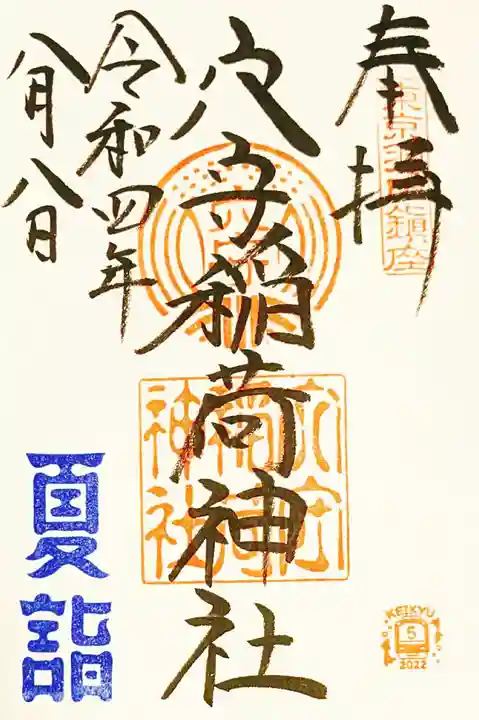 奉拝
東京羽田鎮座
穴守稲荷神社
穴守稲荷神社
令和四年
八月八日
夏詣
KEIKYU
5
2022